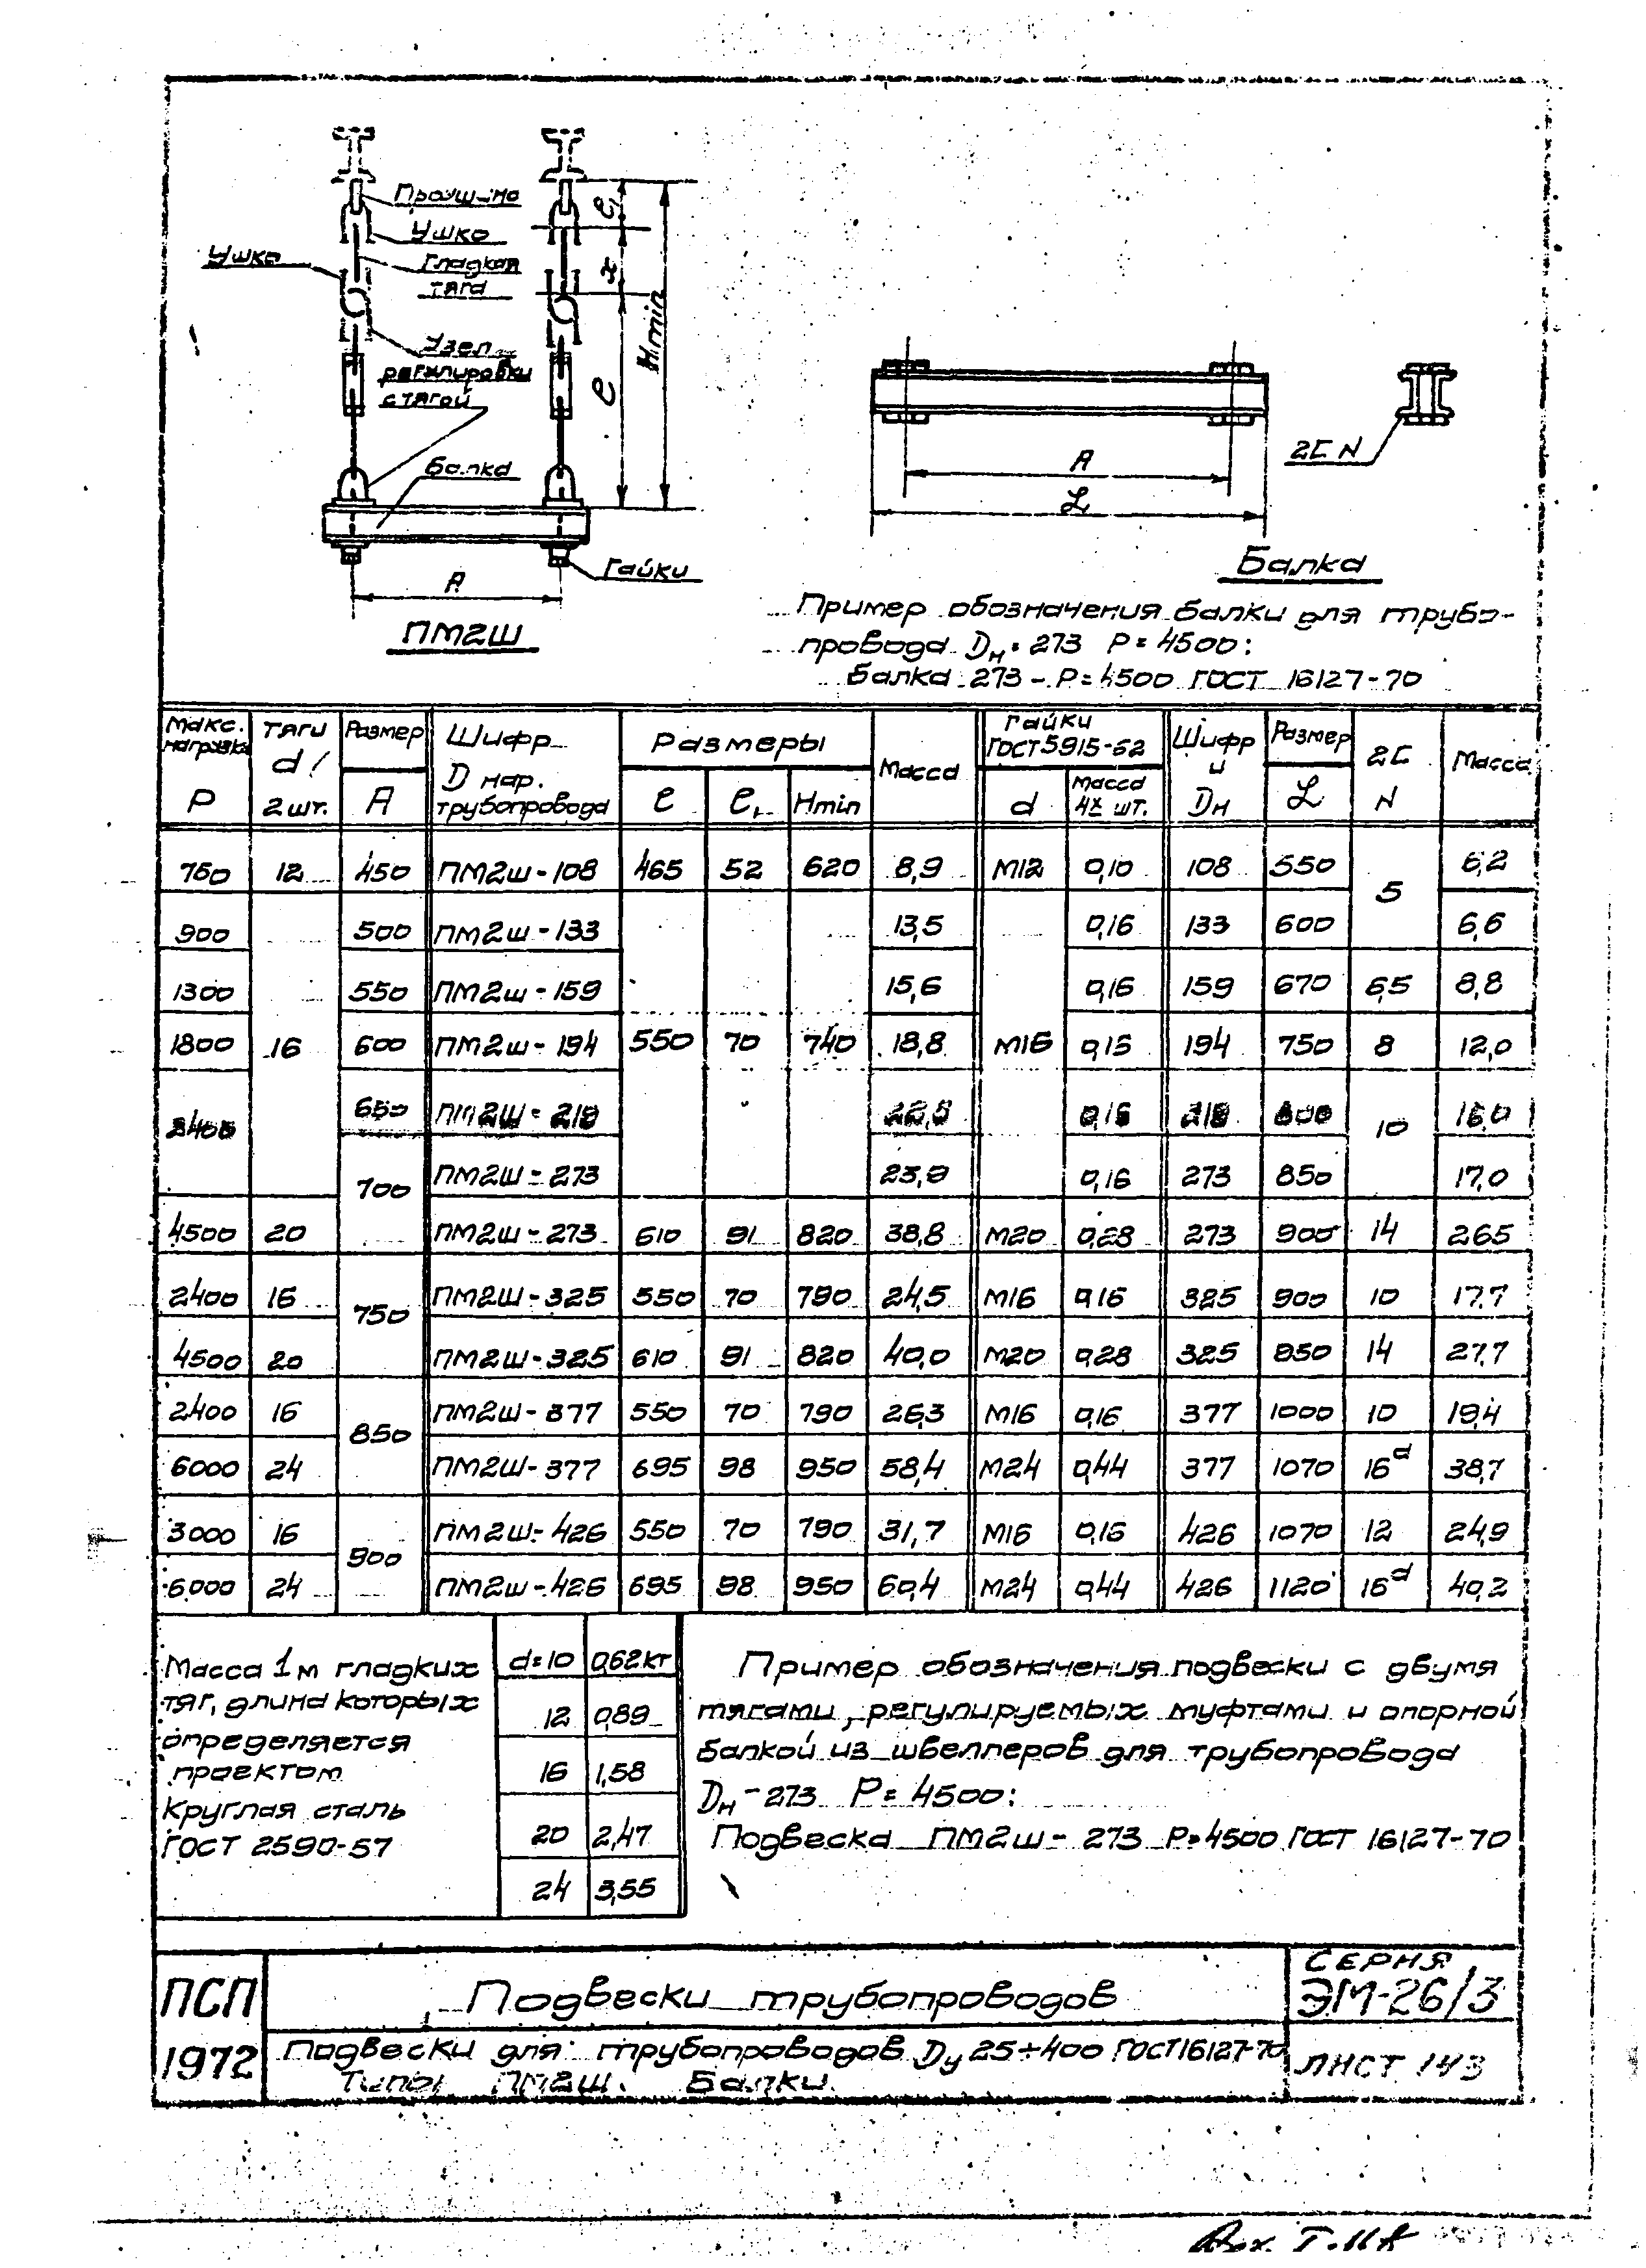 Проушина
Ушко
Ушко
Гладкая
тяга
Узел
регулировки
с тягой
Балка
Гайки
ℓ₁
x
ℓ
Hmin
A
ПМ2Ш
A
L
2С N
Балка
Пример обозначения балки для трубо-
провода Dн=273 P=4500:
Балка 273-P=4500 ГОСТ 16127-70
Макс. нагрузка P | Тяги d 2 шт. | Размер A | Шифр D нар. трубопровода | Размеры ℓ | ℓ₁ | Hmin | Масса | Гайки ГОСТ 5915-62 d | Масса 4х шт. | Шифр и Dн | Размер L | 2С N | Масса
750 | 12 | 450 | ПМ2ш-108 | 465 | 52 | 620 | 8,9 | М12 | 0,10 | 108 | 550 | 5 | 6,2
900 | 500 | ПМ2ш-133 | 13,5 | 0,16 | 133 | 600 | 6,6
1300 | 550 | ПМ2ш-159 | 15,6 | 0,16 | 159 | 670 | 6,5 | 8,8
1800 | 16 | 600 | ПМ2ш-194 | 550 | 70 | 740 | 18,8 | М16 | 0,16 | 194 | 750 | 8 | 12,0
2400 | 650 | ПМ2ш-219 | 0,16 | 219 | 800 | 10 | 16,0
700 | ПМ2ш-273 | 23,9 | 0,16 | 273 | 850 | 17,0
4500 | 20 | ПМ2ш-273 | 610 | 91 | 820 | 38,8 | М20 | 0,28 | 273 | 900 | 14 | 26,5
2400 | 16 | 750 | ПМ2ш-325 | 550 | 70 | 790 | 24,5 | М16 | 0,16 | 325 | 900 | 10 | 17,7
4500 | 20 | ПМ2ш-325 | 610 | 91 | 820 | 40,0 | М20 | 0,28 | 325 | 950 | 14 | 27,7
2400 | 16 | 850 | ПМ2ш-377 | 550 | 70 | 790 | 26,3 | М16 | 0,16 | 377 | 1000 | 10 | 19,4
6000 | 24 | ПМ2ш-377 | 695 | 98 | 950 | 58,4 | М24 | 0,44 | 377 | 1070 | 16d | 38,7
3000 | 16 | 900 | ПМ2ш-426 | 550 | 70 | 790 | 31,7 | М16 | 0,16 | 426 | 1070 | 12 | 24,9
6000 | 24 | ПМ2ш-426 | 695 | 98 | 950 | 60,4 | М24 | 0,44 | 426 | 1120 | 16d | 40,2
Масса 1м гладких
тяг, длина которых
определяется
проектом
Круглая сталь
ГОСТ 2590-57
d=10 | 0,62кг
12 | 0,89
16 | 1,58
20 | 2,47
24 | 3,55
Пример обозначения подвески с двумя
тягами, регулируемых муфтами и опорной
балкой из швеллеров для трубопровода
Dн-273 P=4500:
Подвеска ПМ2ш-273 P=4500 ГОСТ 16127-70
ПСП
1972
Подвески трубопроводов
Подвески для трубопроводов Dу 25÷400 ГОСТ 16127-70
Типы ПМ2ш. Балки.
СЕРИЯ
ЭМ-26/3
ЛИСТ